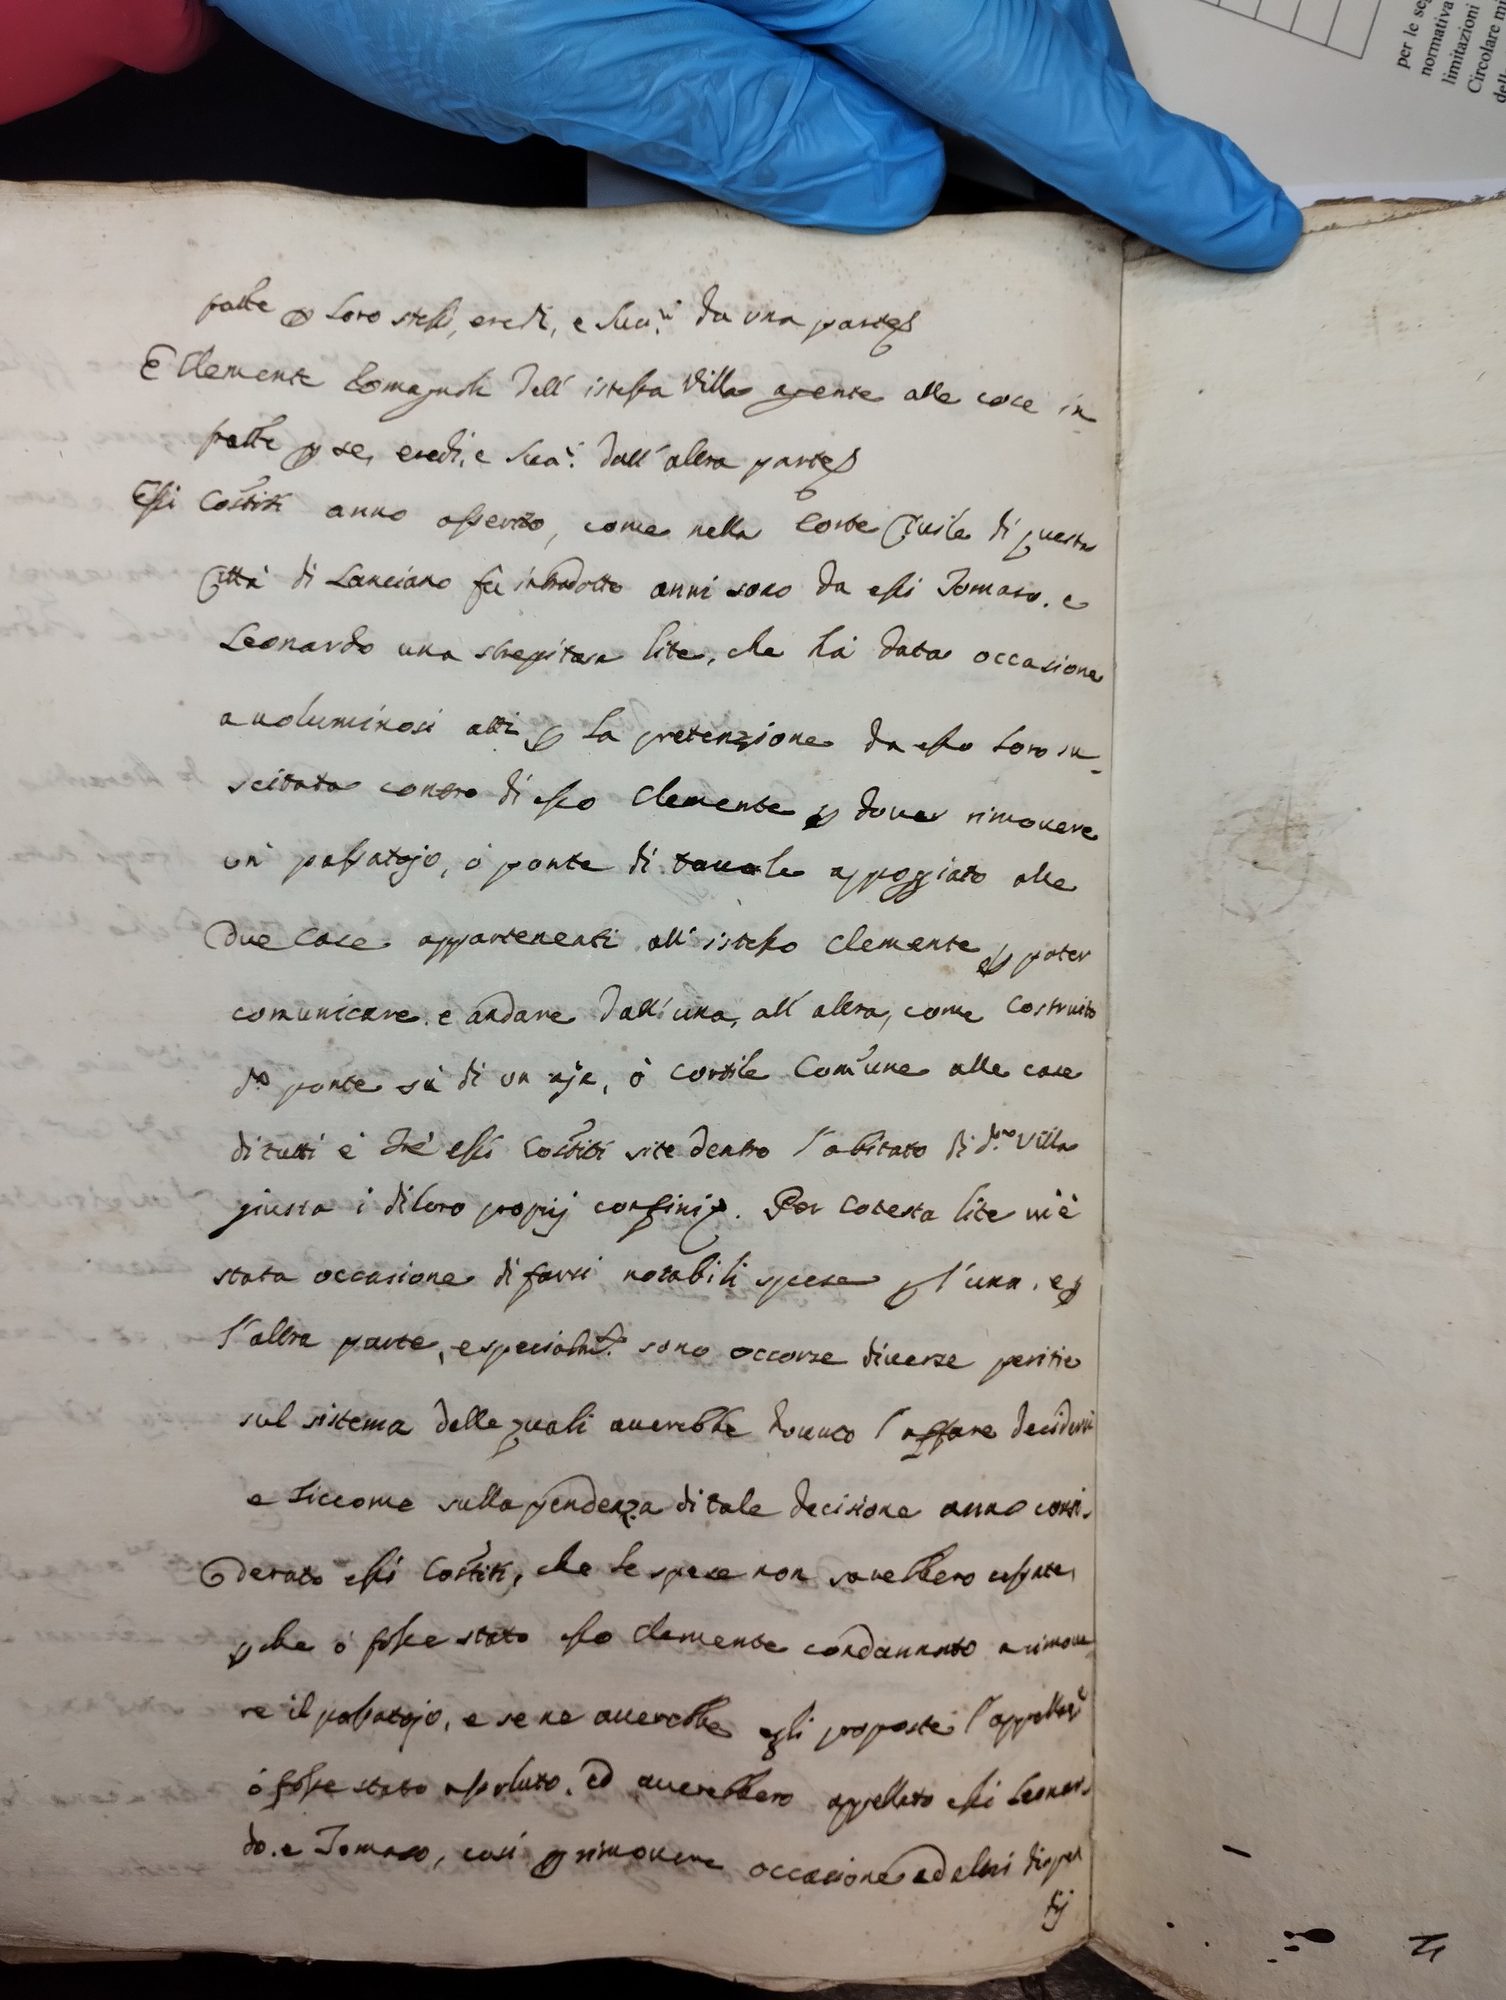 fatte p loro stessi, eredi, e suc.ri da una parte
E Clemente Romagnoli dell'istessa Villa agente alle cose in-
fatte p se, eredi, e suc.i dall'altra parte
Essi Costiti anno asserito, come nella Corte Civile di questa
Città di Lanciano fù introdotto anni sono da essi Tomaso, e
Leonardo una strepitosa lite, che hà data occasione
a voluminosi atti p la pretenzione da esso loro su-
scitata contro di esso Clemente p dover rimovere
un passatojo, ò ponte di tavole appoggiato alle
due case appartenenti all'istesso Clemente p poter
comunicare, e andare dall'una, all'altra, come costruito
d.o ponte sù di un aja, ò cortile Com̄une alle case
di tutti è trè essi Costiti site dentro l'abitato di d.a Villa
giusta i di loro proprij confini. Per cotesta lite vi è
stata occasione di farsi notabili spese p l'una, e p
l'altra parte, e specialm.te sono occorse diverse peritie
sul sistema delle quali averebbe dovuto l'affare decidersi
e siccome sulla pendenza di tale decisione anno consi-
derato essi Costiti, che le spese non sarebbero cessate,
p che ò fosse stato esso Clemente condannato a rimove
re il passatojo, e se ne averebbe egli proposte l'appellaz.e
ò fosse stato assoluto, ed averebbero appellato essi Leonar-
do, e Tomaso, così p rimovere occasione ad altri dispen
dj
per le se
normativa
limitazioni
Circolare mi
dell